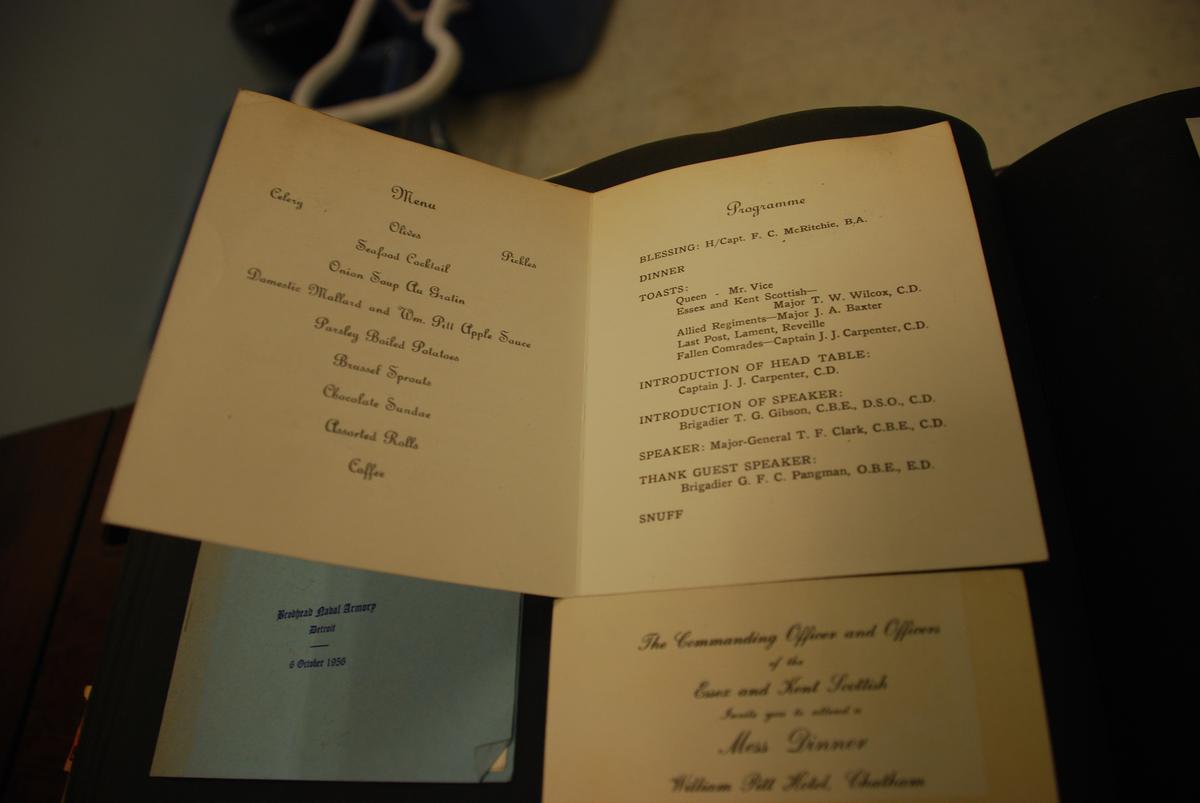 Menu
Celery
Olives
Pickles
Seafood Cocktail
Onion Soup Au Gratin
Domestic Mallard and Wm. Pitt Apple Sauce
Parsley Boiled Potatoes
Brussel Sprouts
Chocolate Sundae
Assorted Rolls
Coffee
Programme
BLESSING: H/Capt. F. C. McRitchie, B.A.
DINNER
TOASTS:
Queen - Mr. Vice
Essex and Kent Scottish—
Major T. W. Wilcox, C.D.
Allied Regiments—Major J. A. Baxter
Last Post, Lament, Reveille
Fallen Comrades—Captain J. J. Carpenter, C.D.
INTRODUCTION OF HEAD TABLE:
Captain J. J. Carpenter, C.D.
INTRODUCTION OF SPEAKER:
Brigadier T. G. Gibson, C.B.E., D.S.O., C.D.
SPEAKER: Major-General T. F. Clark, C.B.E., C.D.
THANK GUEST SPEAKER:
Brigadier G. F. C. Pangman, O.B.E., E.D.
SNUFF
Brodhead Naval Armory
Detroit
6 October 1956
The Commanding Officer and Officers
of the
Essex and Kent Scottish
Invite you to attend a
Mess Dinner
William Pitt Hotel, Chatham